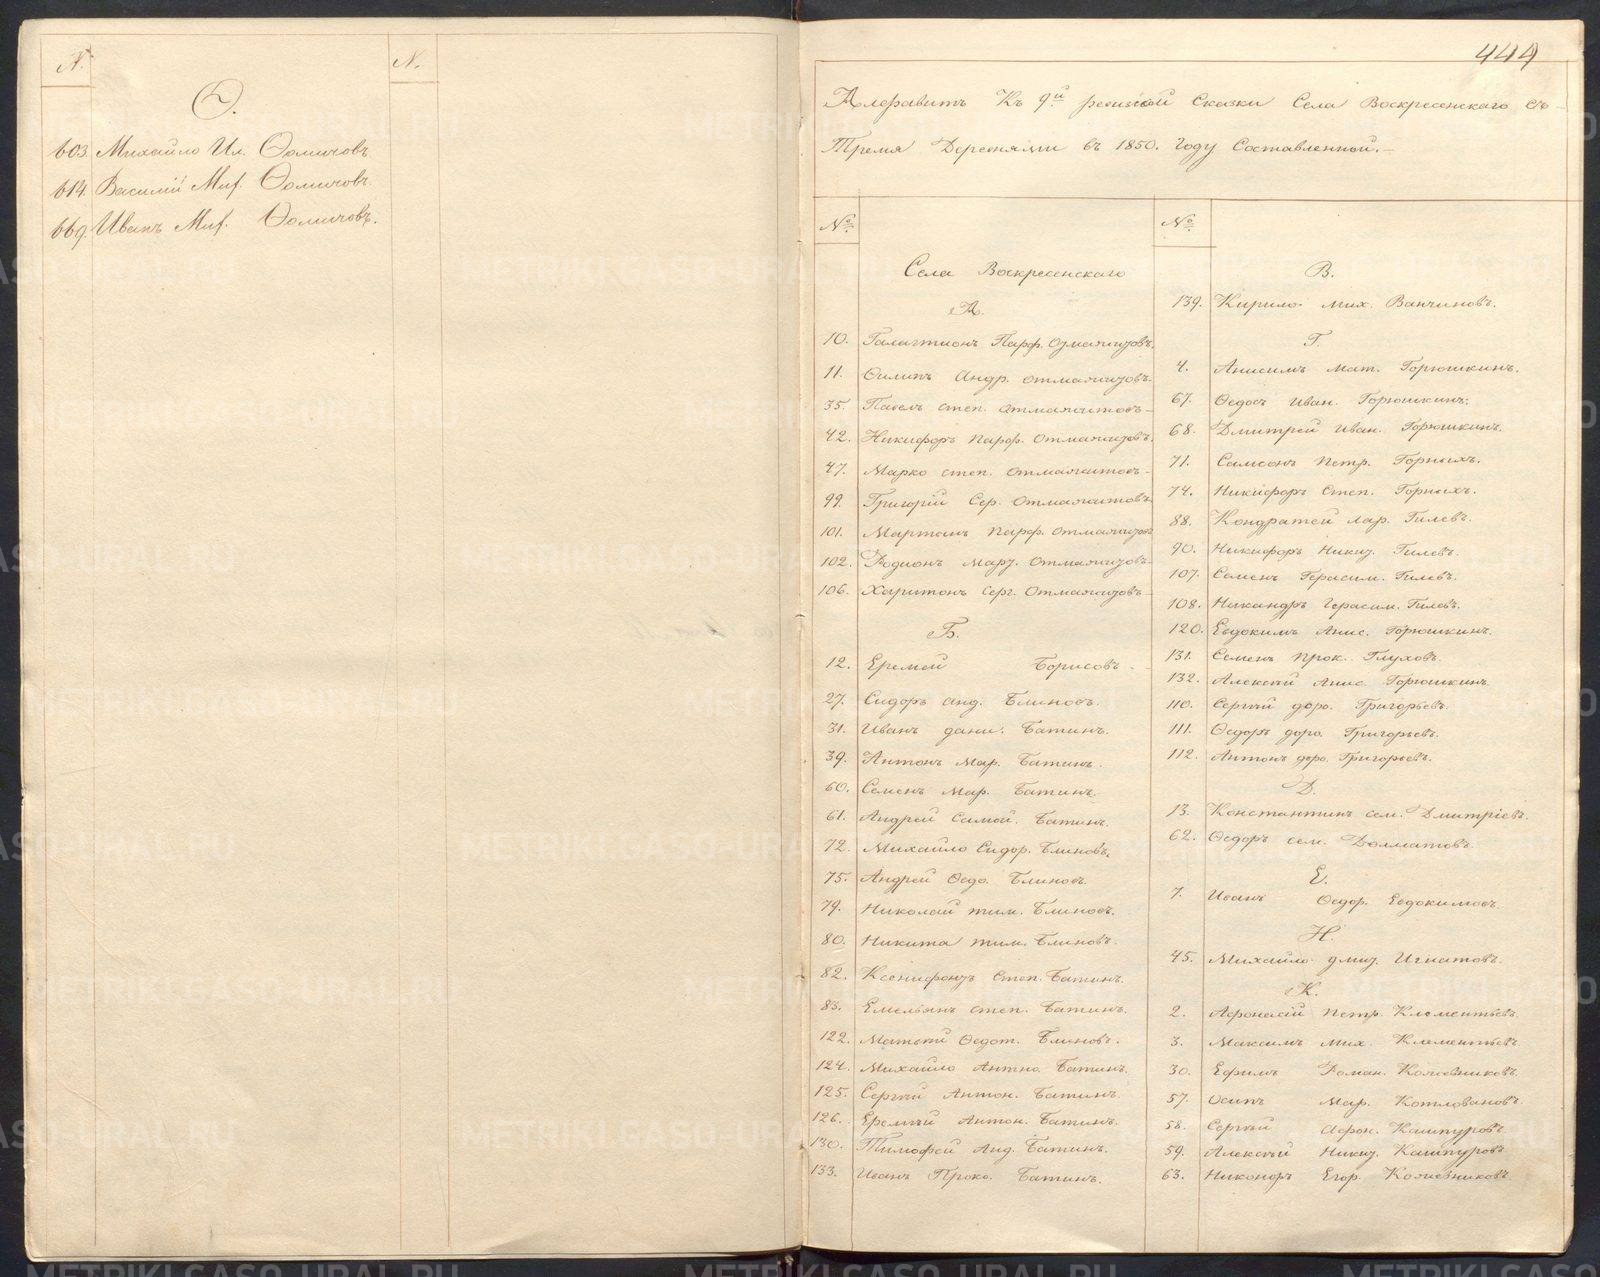 N.
N.
Ѳ.
603. Михайло Ил. Ѳомичовъ
614. Василій Миф. Ѳомичовъ.
669. Иванъ Миф. Ѳомичовъ.
444
Алфавитъ Къ 9й ревизской Сказки Села Воскресенскаго съ
Тремя Деревнями въ 1850. Году Составленной.
№
Села Воскресенскаго
А.
10. Галагтионъ Парф. Отмахитовъ.
11. Филипъ Андр. Отмахитовъ.
35. Павелъ Степ. Отмахитовъ
42. Никифоръ Парф. Отмахитовъ.
47. Марко Степ. Отмахитовъ
99. Григорій Сер. Отмахитовъ
101. Мартынъ Парф. Отмахитовъ
102. Родионъ Март. Отмахитовъ
106. Харитонъ Серг. Отмахитовъ
Б.
12. Еремей Борисовъ
27. Сидоръ Анд. Блиновъ.
31. Иванъ Дани. Батинъ.
39. Антонъ Мар. Батинъ.
60. Семенъ Мар. Батинъ.
61. Андрей Самой. Батинъ.
72. Михайло Сидор. Блиновъ.
75. Андрей Ѳедо. Блиновъ.
79. Николай Тим. Блиновъ.
80. Никита Тим. Блиновъ.
82. Ксенифонтъ Степ. Батинъ.
83. Емельянъ Степ. Батинъ.
122. Матвей Ѳедот. Блиновъ.
124. Михайло Антно. Батинъ.
125. Сергѣй Антон. Батинъ.
126. Еремѣй Антон. Батинъ.
130. Тимофей Анд. Батинъ.
133. Иванъ Проко. Батинъ.
№
В.
139. Кирило Мих. Ванчиновъ.
Г.
4. Анисимъ Мат. Горюшкинъ.
67. Ѳедосъ Иван. Горюшкинъ.
68. Дмитрей Иван. Горюшкинъ.
71. Самсонъ Петр. Горныхъ.
74. Никифоръ Степ. Горныхъ.
88. Кондратей Лар. Гилевъ.
90. Никифоръ Никит. Гилевъ.
107. Семенъ Герасим. Гилевъ.
108. Никандръ Герасим. Гилевъ.
120. Евдокимъ Анис. Горюшкинъ.
131. Семенъ Прок. Глуховъ.
132. Алексѣй Анис. Горюшкинъ.
110. Сергѣй Доро. Григорьевъ.
111. Ѳедоръ Доро. Григорьевъ.
112. Антонъ Доро. Григорьевъ.
Д.
13. Константинъ Сем. Дмитріевъ.
62. Ѳедоръ Сем. Долматовъ.
Е.
7. Иванъ Ѳедор. Евдокимовъ.
И.
45. Михайло Дмит. Игнатовъ.
К.
2. Афонасій Петр. Клементьевъ.
3. Максимъ Мих. Клементьевъ.
30. Ефимъ Роман. Кожевниковъ.
57. Осипъ Мар. Котловановъ.
58. Сергѣй Афон. Кашпуровъ.
59. Алексѣй Никит. Кашпуровъ.
63. Никоноръ Егор. Кожевниковъ
METRIKI.GASO-URAL.RU